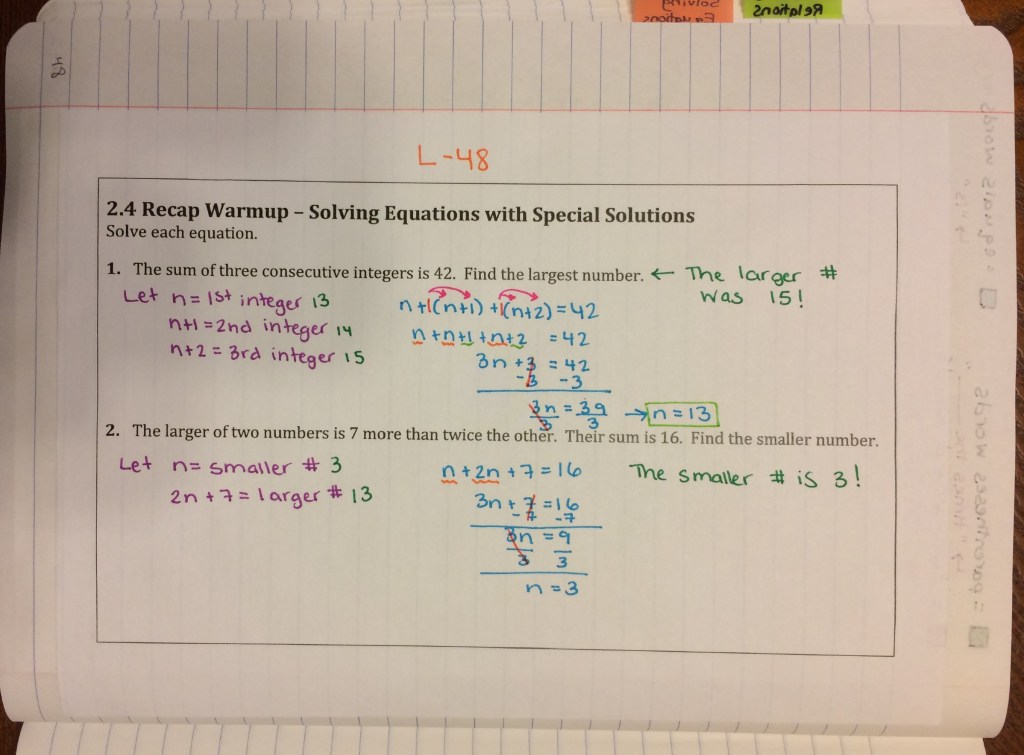 48
L-48
2.4 Recap Warmup – Solving Equations with Special Solutions
Solve each equation.
1. The sum of three consecutive integers is 42. Find the largest number. ← The larger #
was 15!
Let n = 1st integer 13
n+1 = 2nd integer 14
n+2 = 3rd integer 15
n + 1(n+1) + 1(n+2) = 42
n + n+1 + n+2 = 42
3n + 3 = 42
-3 -3
3n = 39 → n = 13
3 3
2. The larger of two numbers is 7 more than twice the other. Their sum is 16. Find the smaller number.
Let n = smaller # 3
2n + 7 = larger # 13
n + 2n + 7 = 16
3n + 7 = 16
-7 -7
3n = 9
3 3
n = 3
The smaller # is 3!
Solving
Equations
Relations